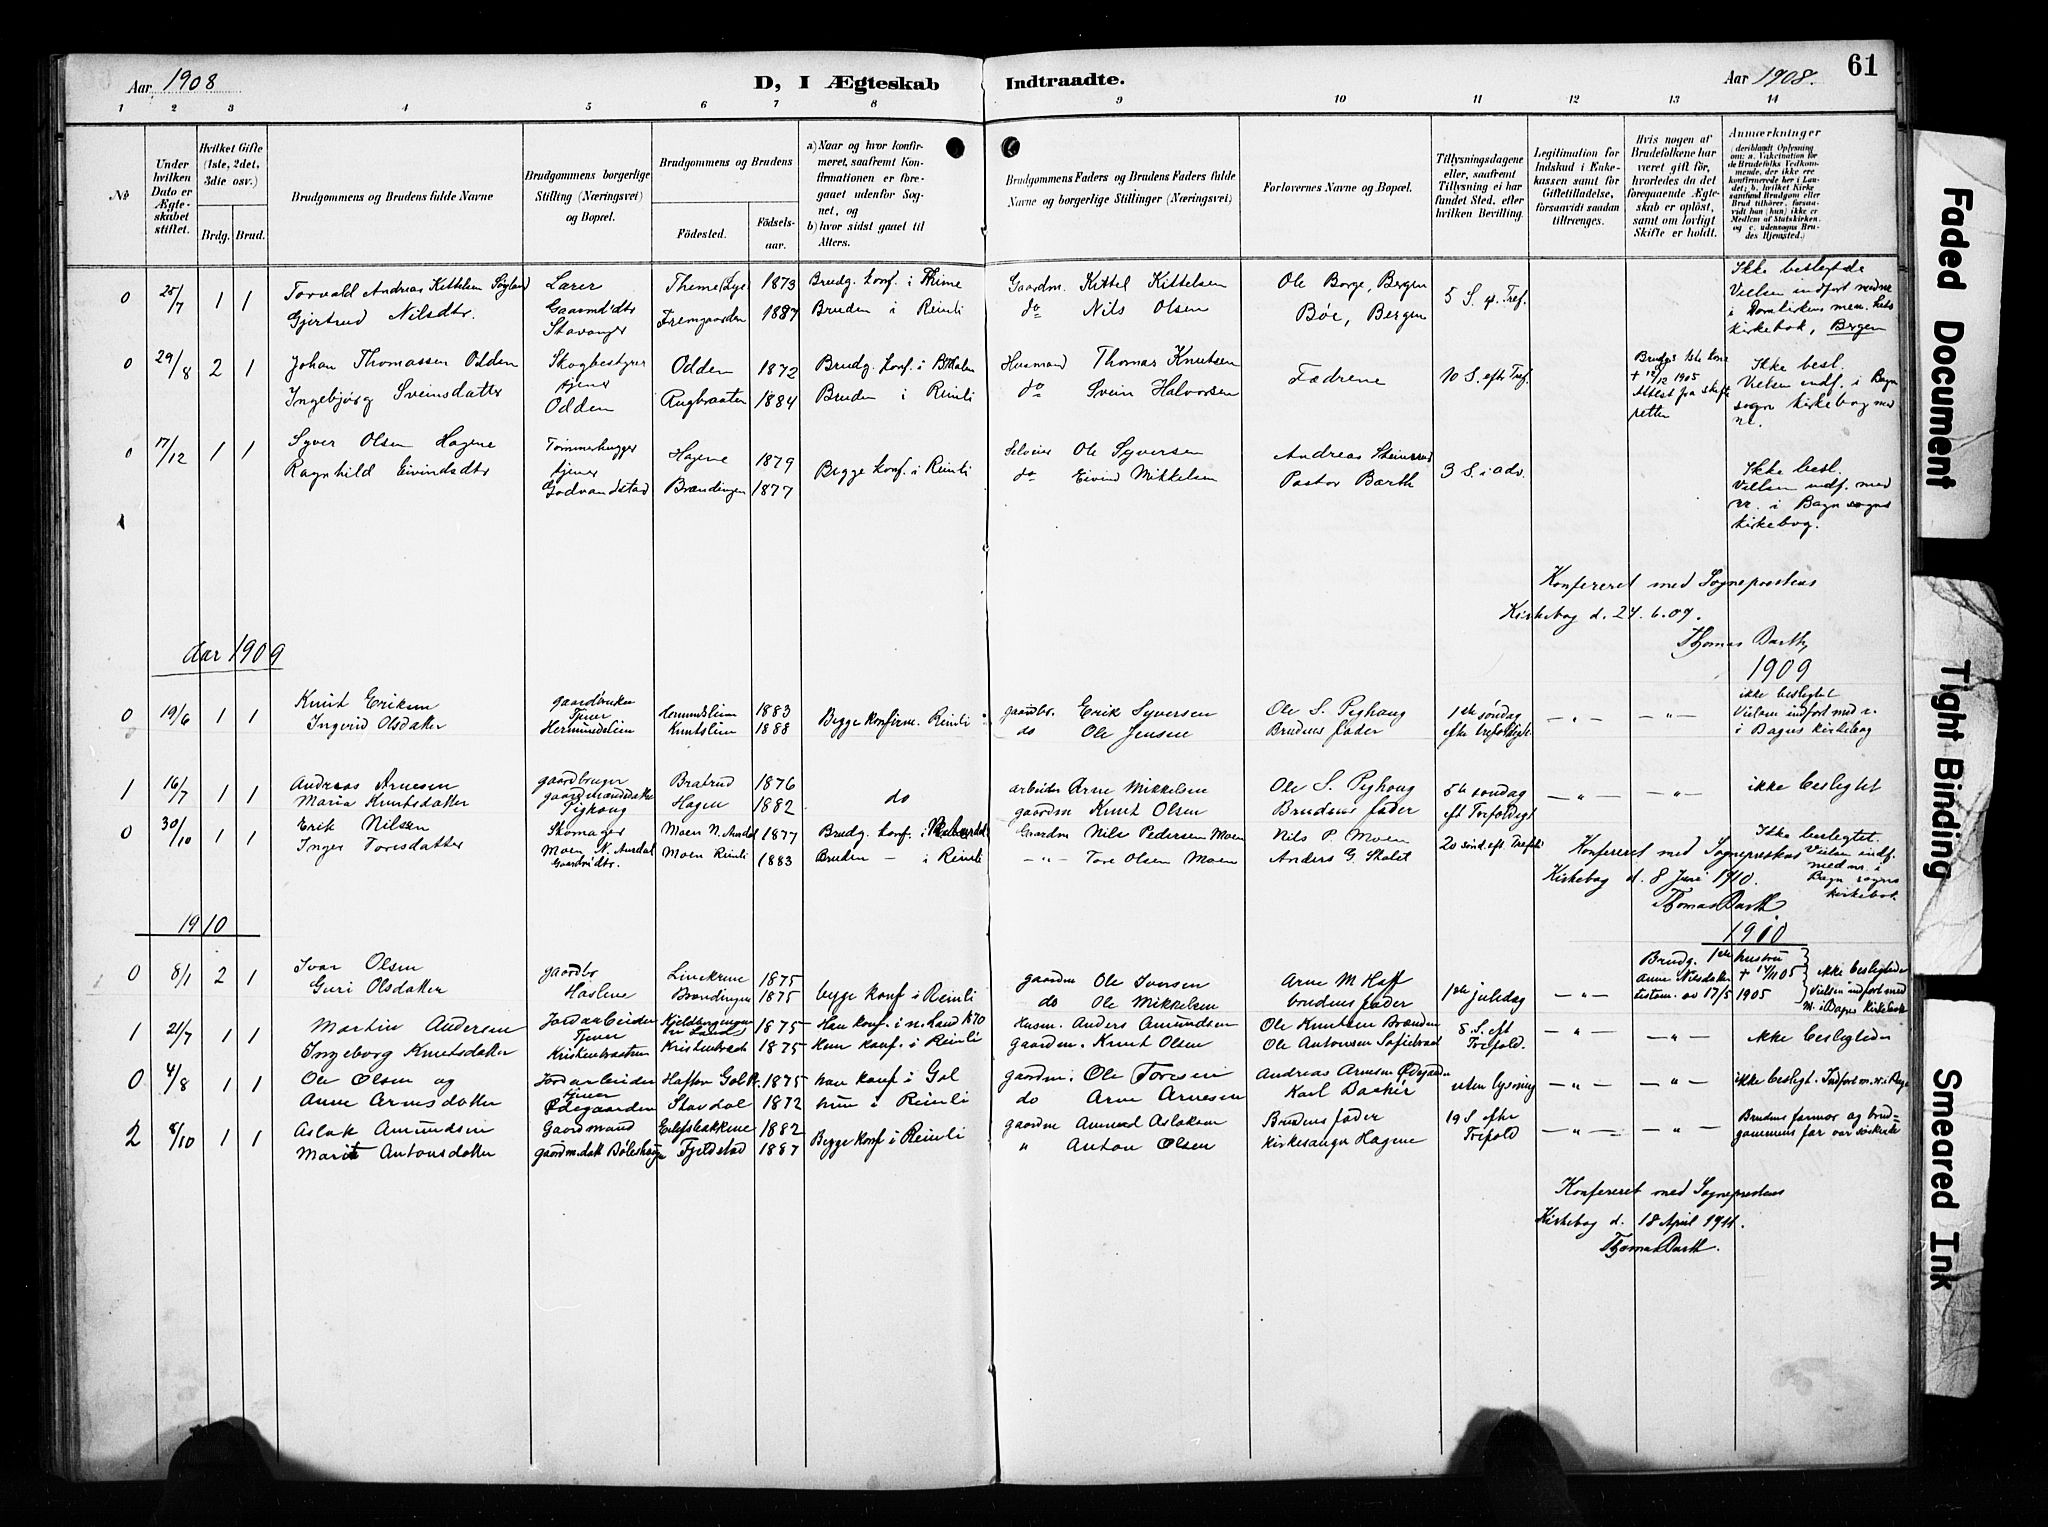 Aar 1908
D, I Ægteskab Indtraadte.
Aar 1908.
61
1 2 3 4 5 6 7 8 9 10 11 12 13 14
№
Under hvilken Dato er Ægteskabet stiftet.
Hvilket Gifte (1ste, 2det, 3die osv.)
Brdg. Brud.
Brudgommens og Brudens fulde Navne
Brudgommens borgerlige Stilling (Næringsvei) og Bopæl.
Brudgommens og Brudens
Fødested.
Fødselsaar.
a) Naar og hvor konfirmeret, saafremt Konfirmationen er foregaaet udenfor Sognet, og
b) hvor sidst gaaet til Alters.
Brudgommens Faders og Brudens Faders fulde Navne og borgerlige Stillinger (Næringsvei)
Forlovernes Navne og Bopæl.
Tillysningsdagene eller, saafremt Tillysning ei har fundet Sted, efter hvilken Bevilling.
Legitimation for Indskud i Enkekassen samt for Giftetilladelse, forsaavidt saadan tiltrænges.
Hvis nogen af Brudefolkene har været gift før, hvorledes da det foregaaende Ægteskab er opløst, samt om lovligt Skifte er holdt.
Anmærkninger (deriblandt Oplysning om: a. Vaccination for de Brudefolks Vedkommende, der ikke ere konfirmerede her i Landet; b. hvilket Kirkesamfund Brudgom eller Brud tilhører, forsaavidt han (hun) ikke er Medlem af Statskirken, og c. udensogns Brudes Hjemsted.)
0 25/7 1 1 Torvald Andreas Kittelsen Lærer 1873 Brudg. konf. i Thime Gaardm. Kittel Kittelsen Ole Borge, Bergen 5 S. e. Tref. Ikke beslegtede
Gjertrud Nilsdtr. Stavanger Fremgaarden 1887 Bruden i Reinli do Nils Olsen Bøe, Bergen Vielsen indført
kirkebok, Bergen
0 29/8 2 1 Johan Thomassen Odden Skogbestyrer Odden 1872 Brudg. konf. i Husmand Thomas Knutsen Fædrene 10 S. eft Tref. + 12/12 1905 Ikke besl.
Ingebjørg Sveinsdatter tjener Odden Rugbraaten 1884 Bruden i Reinli do Svein Halvorsen Attest fra skifteretten Vielsen indf. i Bagn sogns kirkebog med nr.
0 17/12 1 1 Syver Olsen Hagene Tømmerhugger Hagene 1879 Begge konf. i Reinli Ole Syversen Andreas 3 S. i adv. Ikke besl.
Ragnhild Eivindsdtr tjener Godvandstad Brændingen 1877 do Eivind Mikkelsen Pastor Barth Vielsen indf. med nr. i Bagn sogns kirkebog.
Konfereret med Sogneprestens
Kirkebog d. 24.6.09.
Thomas Barth
Aar 1909
1909
0 19/6 1 1 Knut Eriksen gaardbruker 1883 Begge konfirm. Reinli gaardbr. Erik Syversen Ole S. Pighaug 1ste søndag —„— —„— ikke beslegtet
Ingerid Olsdatter Tjener Hermundslein Knutslien 1888 do Ole Jensen Brudens fader efter trefoldigt. Vielsen indført med n. i Bagns kirkebog
1 16/7 1 1 Andreas Arnesen gaardbruger Bratrud 1876 do arbeider Arne Mikkelsen Ole S. Pighaug 5te søndag —„— —„— ikke beslegtet
Maria Knutsdatter gaardmandsdatter Pighaug Hagen 1882 gaardm Knut Olsen Brudens fader eft Trefoldigt
0 30/10 1 1 Erik Nilsen Skomager Moen N. Aurdal 1877 Brudg. konf. i Gaardm Nils Pedersen Moen Nils P. Moen 20 sønd. eft. Trefoldi Ikke beslegtet.
Inger Toresdatter Moen N. Aurdal Gaardmdtr. Moen Reinli 1883 Bruden — i Reinli —„— Tore Olsen Moen Anders G. Skolet Vielsen indf. med nr. i Bagn sogns kirkebok.
Konfereret med Sogneprestens
Kirkebog d. 8 Juni 1910.
Thomas Barth.
1910
1910
0 8/1 2 1 Ivar Olsen gaardbr 1875 begge konf i Reinli gaardm Ole Iversen Arne M Hoff 1ste juledag —„— Brudg. 1ste hustru
Guri Olsdatter Haslene Brændingen 1875 do Ole Mikkelsen brudens fader Anne Nilsdatter + testam. av 17/5 1905 ikke beslegtede Vielsen indført med nr. i Bagns Kirkebok
1 21/7 1 1 Martin Andersen Jordarbeider 1875 Han konf. i n. Land Husm. Anders Amundsen Ole Knutsen Brænden 8 S. eft —„— —„— ikke beslegtede
Ingeborg Knutsdatter Tjener 1875 Hun konf. i Reinli gaardm. Knut Olsen Ole Antonsen Trefold.
0 4/8 1 1 Ole Olsen og Jordarbeider 1875 han konf i Gol gaardm. Ole Toresen Andreas Arnesen Ødegaarden uten lysning —„— —„— ikke beslegt. Indført m. nr. i Bagn
Anne Arnesdatter tjener Ødegaarden Stavdal 1872 hun i Reinli do Arne Arnesen Karl Bakkir
2 8/10 1 1 Aslak Amundsen Gaardmand 1882 Begge konf i Reinli gaardm Amund Aslaksen Brudens fader 19 S. efter —„— —„— Brudens farmor og brud-
Marit Antonsdatter gaardm.dat. Fjeldstad 1887 „ Anton Olsen kirkesanger Hagene Trefold gommens far var søskende
Konfereret med Sogneprestens
Kirkebog d. 18 April 1911.
Thomas Barth.
Faded Document
Tight Binding
Smeared Ink